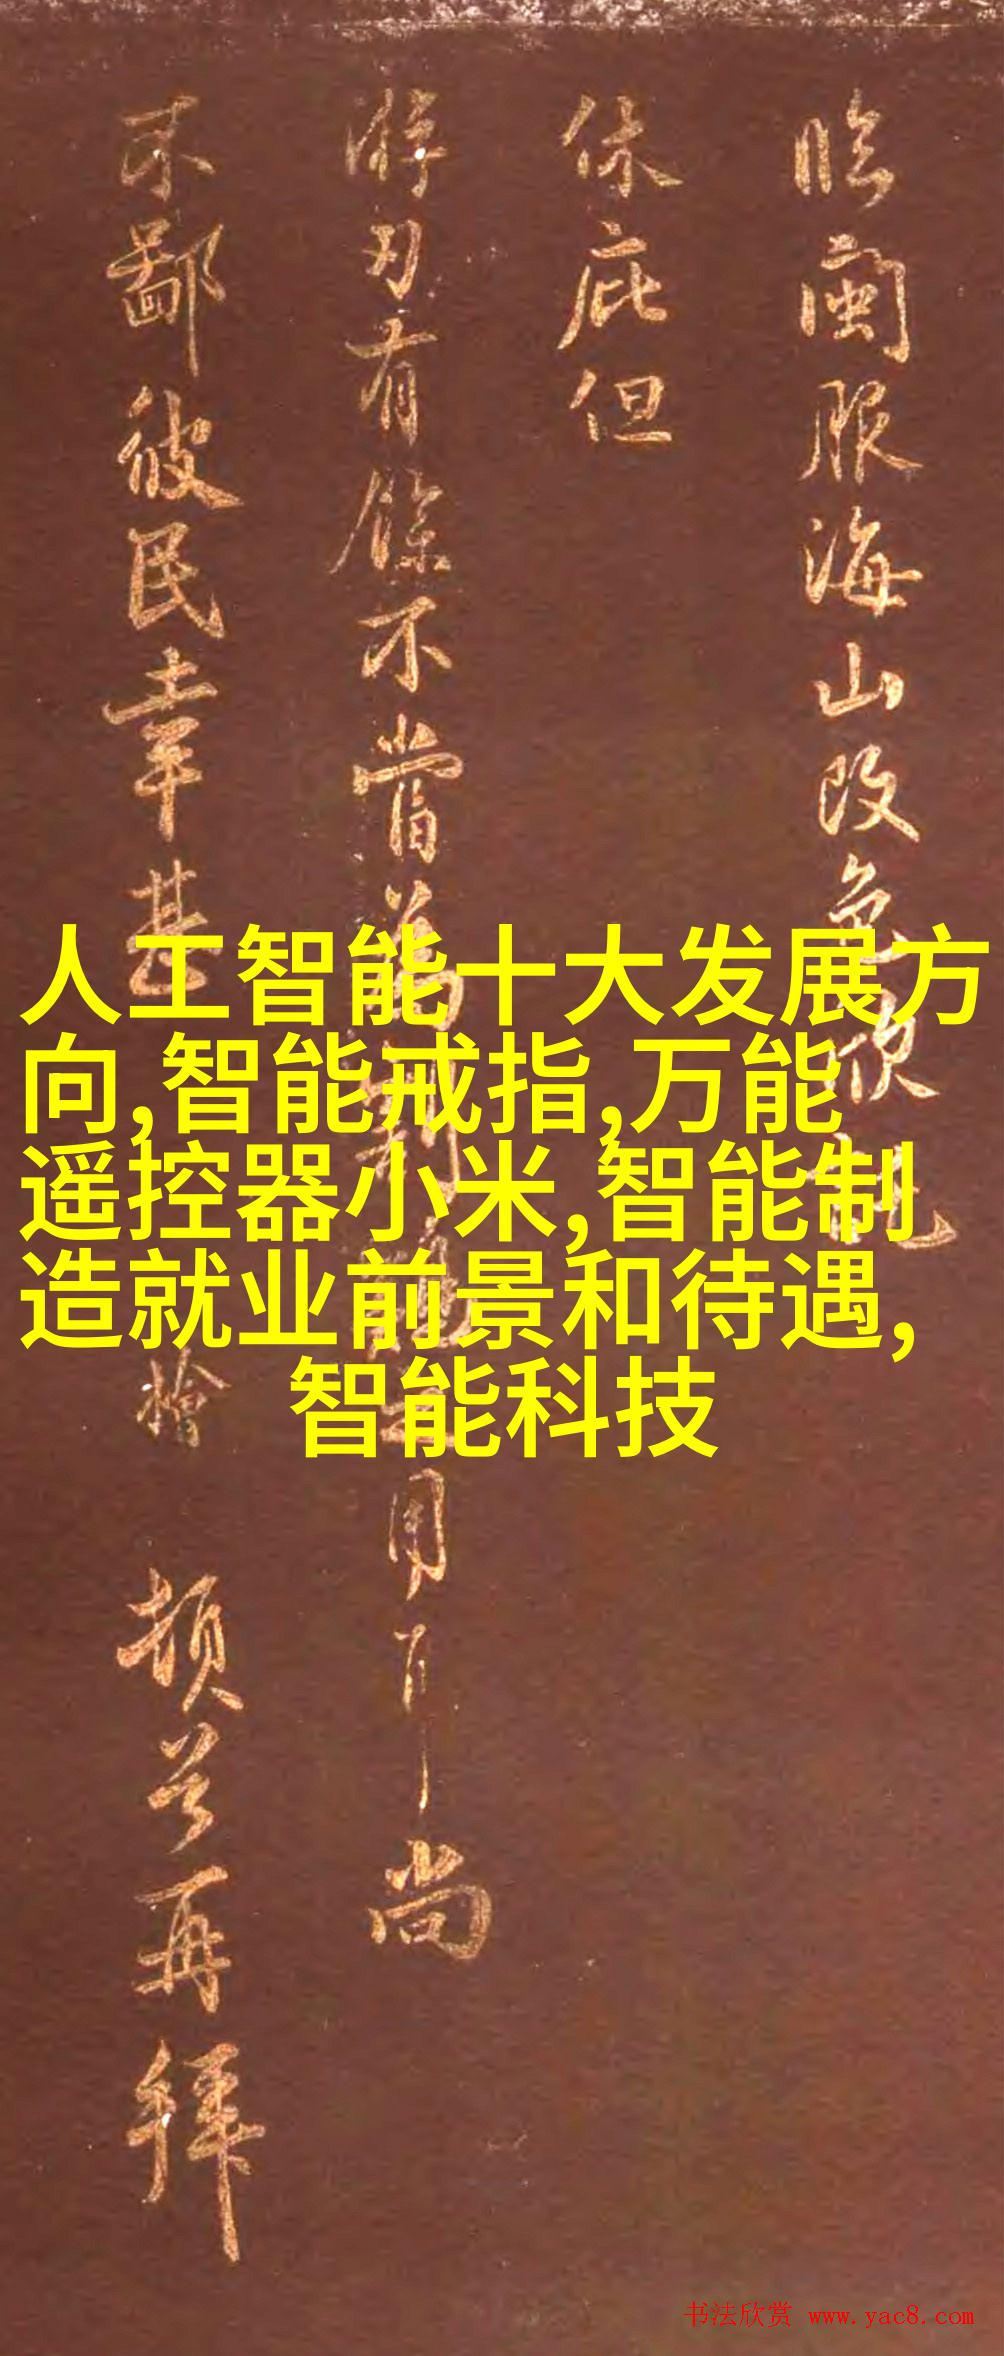 臨閩服海山改色欣
休庇但
游刃有餘不嘗用耳尚
不鄙彼民幸甚 檜 頓首再拜
人工智能十大发展方
向,智能戒指,万能
遥控器小米,智能制
造就业前景和待遇,
智能科技
书法欣赏 www.yac8.com